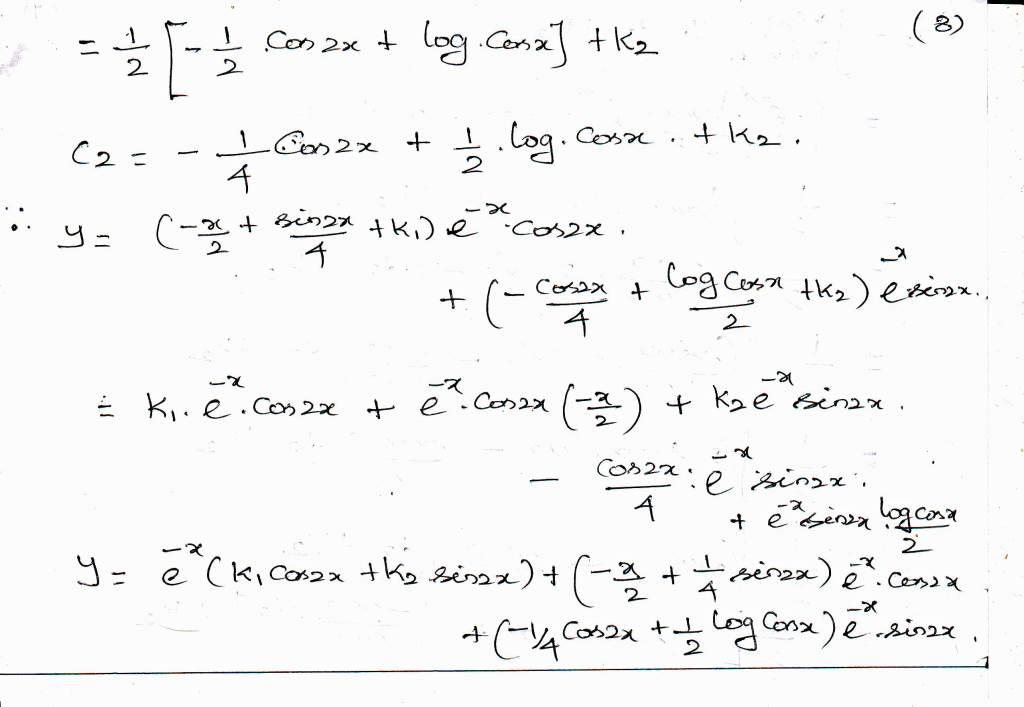 (8)
= 1/2 [ - 1/2 . Cos 2x + log . Cosx ] + K2
C2 = - 1/4 Cos 2x + 1/2 . log . Cosx . + K2 .
∴ y = ( -x/2 + sin2x/4 + K1 ) e^-x . cos2x .
+ ( - cos2x/4 + log Cosx/2 + K2 ) e^-x sin2x .
= K1 . e^-x . Cos2x + e^-x . Cos2x ( -x/2 ) + K2 e^-x sin2x .
- Cos2x/4 . e^-x sin2x .
+ e^-x sin2x log cosx/2
y = e^-x ( K1 Cos2x + K2 sin2x ) + ( -x/2 + 1/4 sin2x ) e^-x . Cos2x
+ ( -1/4 Cos2x + 1/2 log Cosx ) e^-x . sin2x .